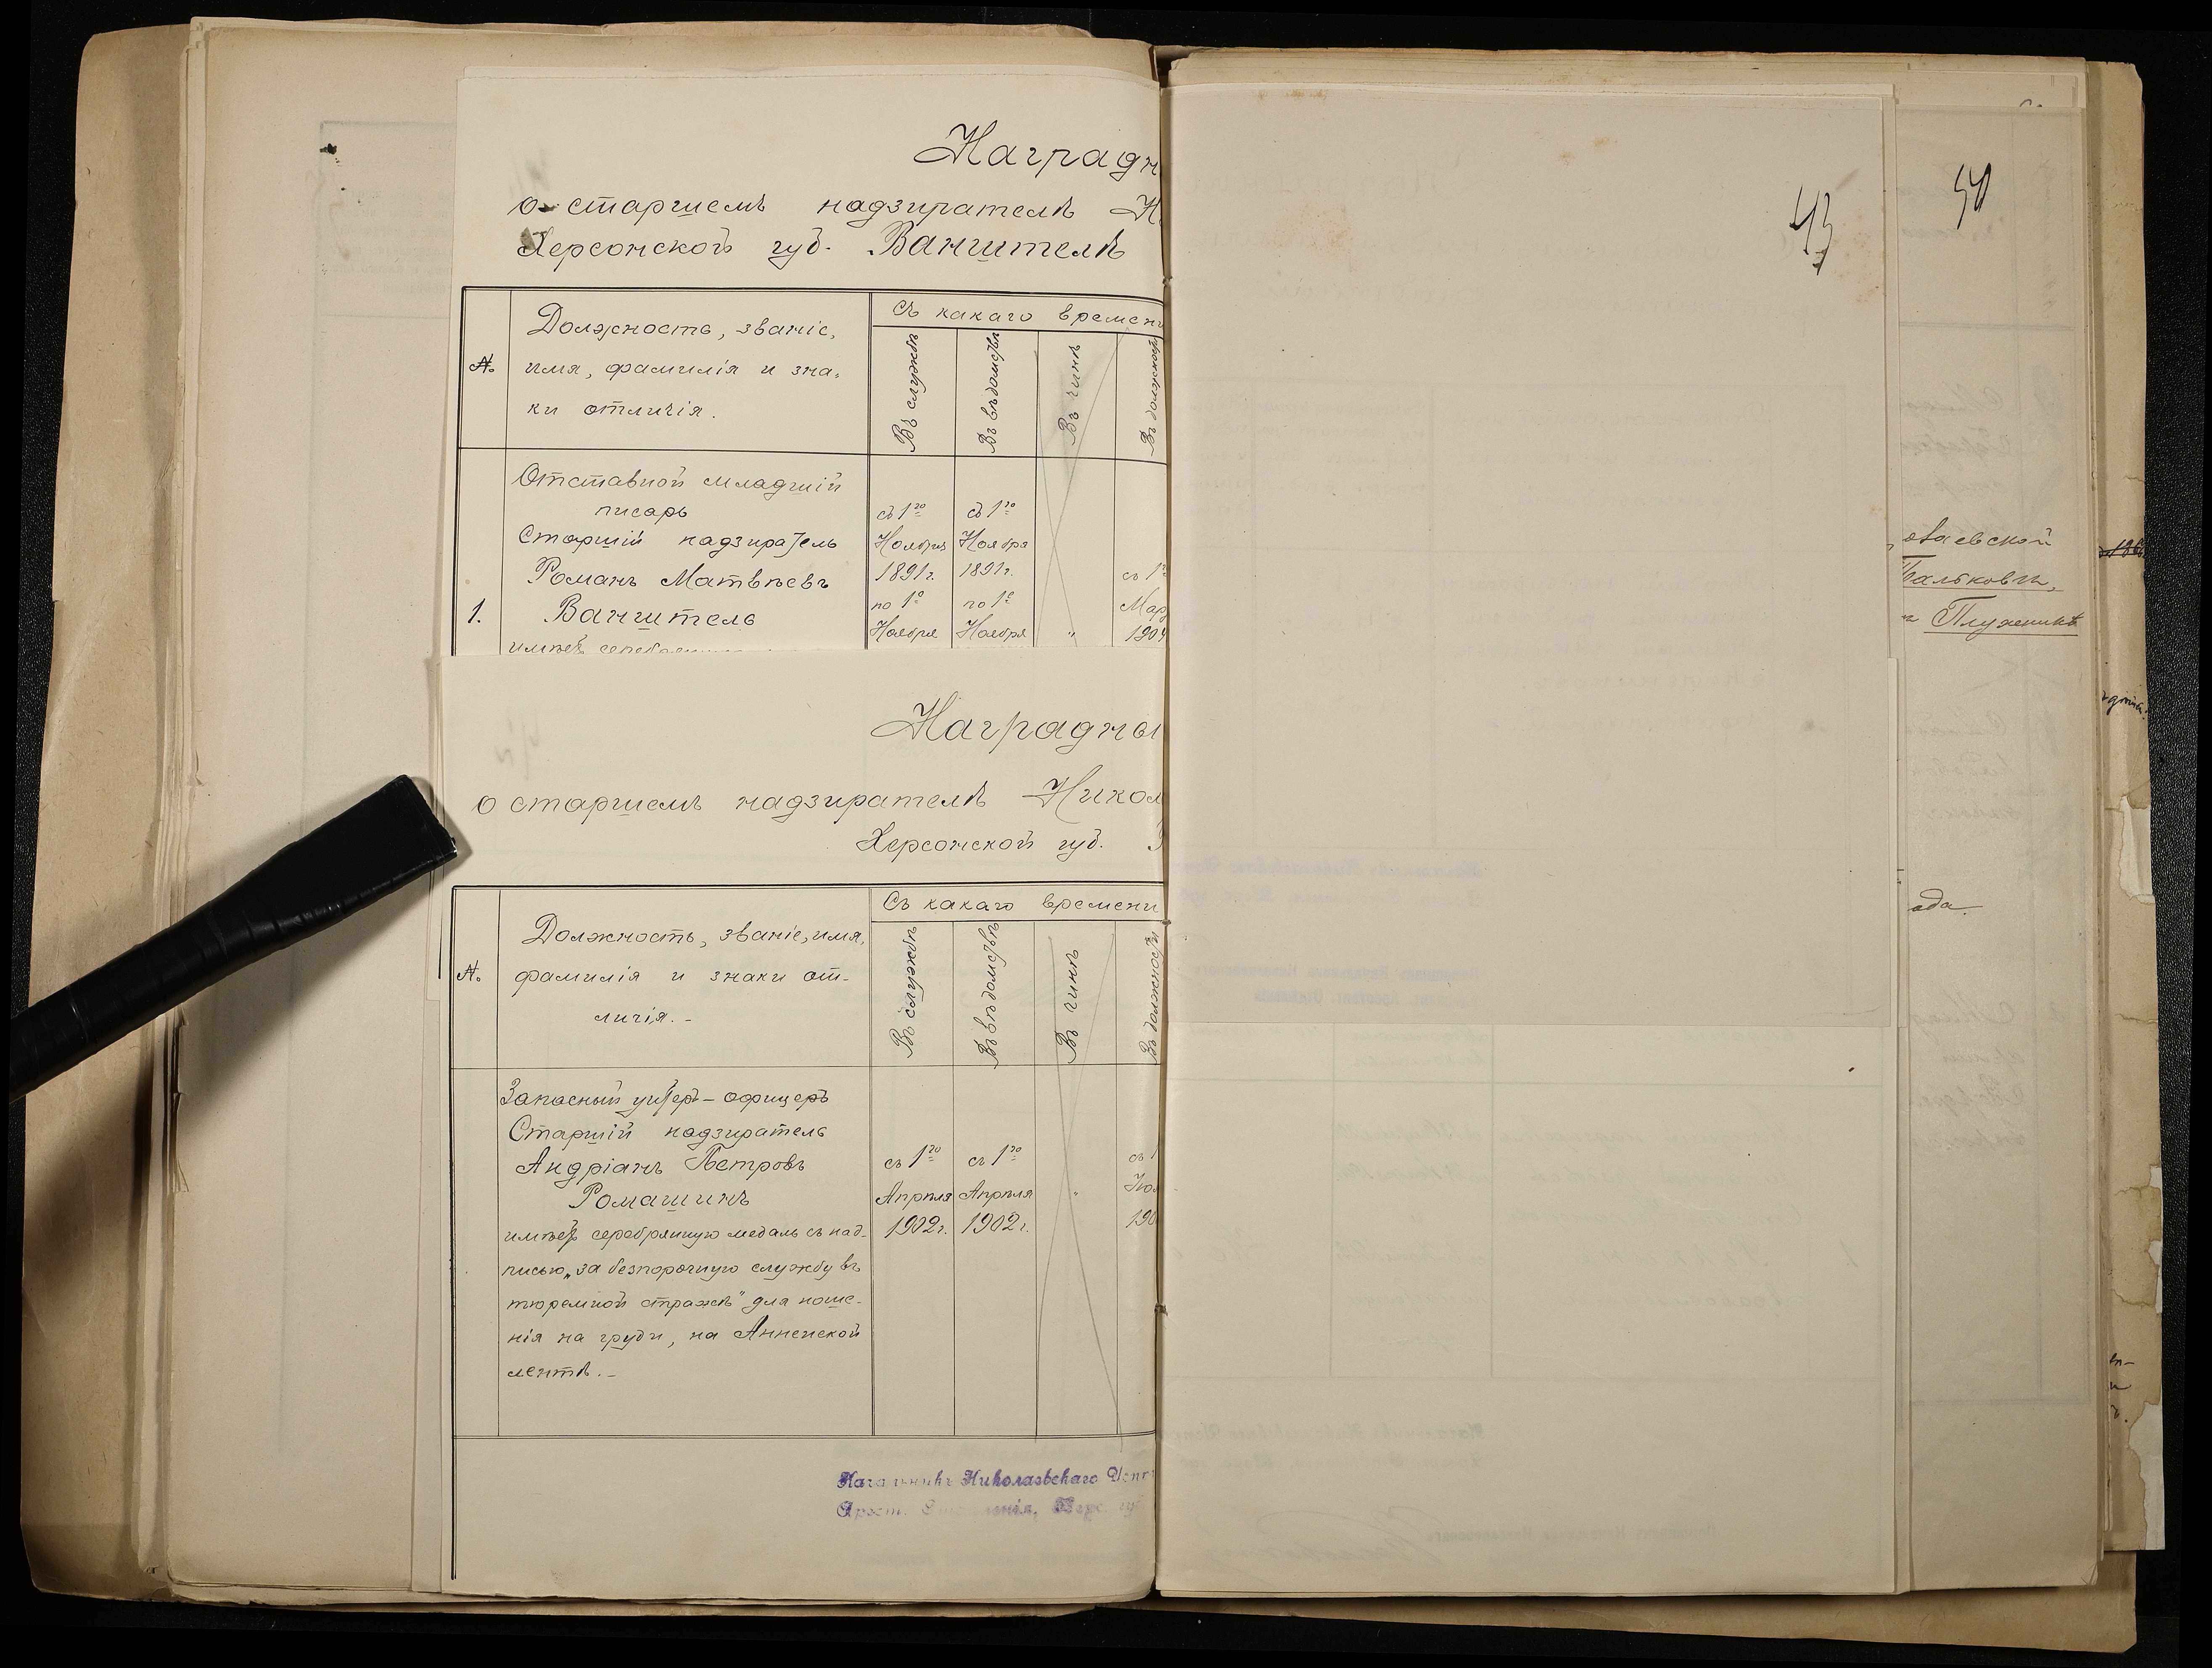 Наградн
о старшемъ надзирателѣ Н
Херсонской губ. Ванштелѣ
№
Должность, званіе,
имя, фамилія и зна-
ки отличія.
Съ какаго времени
Въ службѣ
Въ вѣдомствѣ
Въ чинѣ
Въ должност
Отставной младшій
писарь
Старшій надзиратель
Романъ Матвѣевъ
1. Ванштель
имѣетъ
съ 1го
Ноября
1891г.
по 1е
Ноября
съ 1го
Ноября
1891г.
по 1е
Ноября
"
съ 1го
Мар
1904
Наградны
о старшемъ надзирателѣ Никол
Херсонской губ.
№
Должность, званіе, имя,
фамилія и знаки от-
личія.-
Съ какаго времени
Въ службѣ
Въ вѣдомствѣ
Въ чинѣ
Въ должности
Запасный унтеръ-офицеръ
Старшій надзиратель
Андріанъ Петровъ
Ромашинъ
имѣетъ серебрянную медаль съ над-
писью „за безпорочную службу въ
тюремной стражѣ" для ноше-
нія на груди, на Аннинской
лентѣ.-
съ 1го
Апрѣля
1902г.
съ 1го
Апрѣля
1902г.
"
съ 1
190
Начальникъ Николаевскаго Испр
Арест. Отдѣленія, Херс. губ
43
50
оваевской
Пальковъ,
и Плуженикѣ
ода.